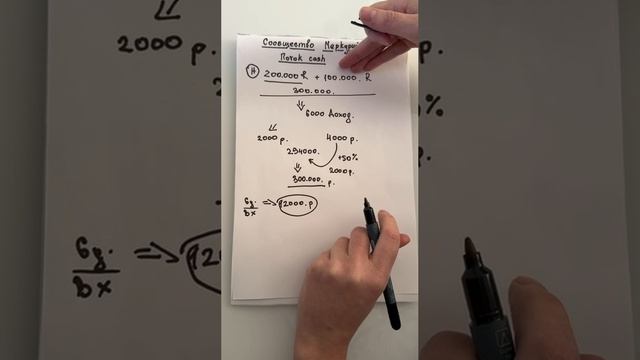 Сообщество Меркурий
Potok cash
Н 200.000 R + 100.000. R
300.000.
⇓ 6000 Доход.
2000 р. 4000 р.
294000. +50%
2000 р.
300.000. р.
6д. ⇒ 12000. р
вх